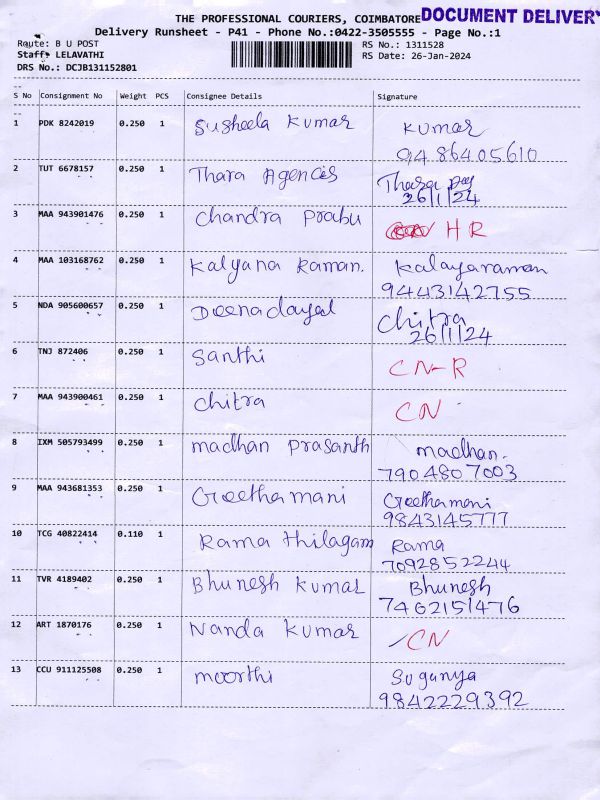 THE PROFESSIONAL COURIERS, COIMBATORE DOCUMENT DELIVER
Delivery Runsheet - P41 - Phone No.:0422-3505555 - Page No.:1
Route: B U POST RS No.: 1311528
Staff: LELAVATHI RS Date: 26-Jan-2024
DRS No.: DCJB131152801
S No Consignment No Weight PCS Consignee Details Signature
1 PDK 8242019 0.250 1 Susheela Kumar Kumar
9486405610
2 TUT 6678157 0.250 1 Thara Agencies Thara
26/1/24
3 MAA 943901476 0.250 1 Chandra Prabu HR
4 MAA 103168762 0.250 1 Kalyana Raman. Kalayaraman
9443142755
5 NDA 905600657 0.250 1 Deenadayal Chitra
26/1/24
6 TNJ 872406 0.250 1 Santhi CN-R
7 MAA 943900461 0.250 1 Chitra CN
8 IXM 505793499 0.250 1 madhan prasanth madhan.
7904807003
9 MAA 943681353 0.250 1 Geethamani Geethamani
9843145777
10 TCG 40822414 0.110 1 Rama thilagam Rama
7092852244
11 TVR 4189402 0.250 1 Bhunesh Kumar Bhunesh
7402151476
12 ART 1870176 0.250 1 Nanda Kumar CN
13 CCU 911125508 0.250 1 moorthi Suganya
9842229392